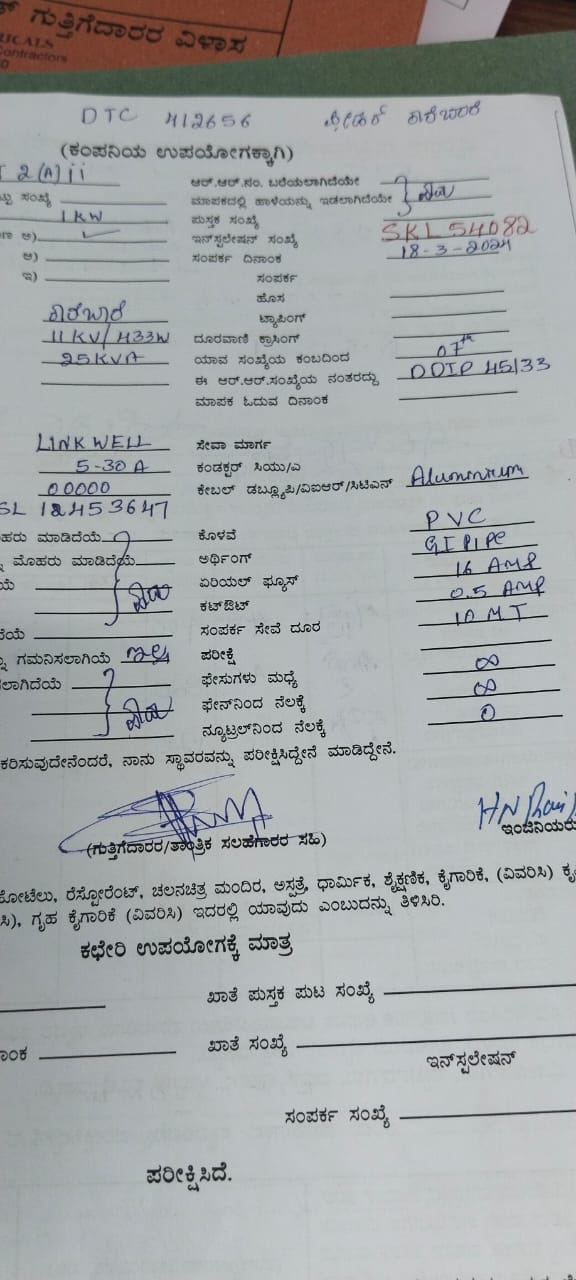 ಗುತ್ತಿಗೆದಾರರ ವಿಳಾಸ
ICALS
Contractors
DTC 412656
(ಕಂಪನಿಯ ಉಪಯೋಗಕ್ಕಾಗಿ)
2(A)ii ಆರ್.ಆರ್.ನಂ. ಬರೆಯಲಾಗಿದೆಯೇ
ಸಂಖ್ಯೆ ಮಾಪಕದಲ್ಲಿ ಹಾಳೆಯನ್ನು ಇಡಲಾಗಿದೆಯೇ
1KW ಪುಸ್ತಕ ಸಂಖ್ಯೆ
ಅ) ಇನ್‌ಸ್ಟಲೇಷನ್ ಸಂಖ್ಯೆ SKL54082
ಆ) ಸಂಪರ್ಕ ದಿನಾಂಕ 18-3-2024
ಇ) ಸಂಪರ್ಕ
ಹೊಸ
ಟ್ಯಾಪಿಂಗ್
11KV/433W ದೂರವಾಣಿ ಕ್ರಾಸಿಂಗ್
25KVA ಯಾವ ಸಂಖ್ಯೆಯ ಕಂಬದಿಂದ 07th
ಈ ಆರ್.ಆರ್.ಸಂಖ್ಯೆಯ ನಂತರದ್ದು DDIP 45133
ಮಾಪಕ ಓದುವ ದಿನಾಂಕ
LINKWELL ಸೇವಾ ಮಾರ್ಗ
5-30A ಕಂಡಕ್ಟರ್ ಸಿಯು/ಎ
00000 ಕೇಬಲ್ ಡಬ್ಲ್ಯೂಪಿ/ವಿಐಆರ್/ಸಿಟಿಎಸ್ Aluminium
SL 12453647
ಮೊಹರು ಮಾಡಿದೆಯೆ ಕೊಳವೆ PVC
ಮೊಹರು ಮಾಡಿದೆಯೆ ಅರ್ಥಿಂಗ್ GI PIPE
ಏರಿಯಲ್ ಫ್ಯೂಸ್ 16 AMP
ಕಟ್‌ಔಟ್ 0.5 AMP
ಸಂಪರ್ಕ ಸೇವೆ ದೂರ 10 MT
ಗಮನಿಸಲಾಗಿಯೆ ಪರೀಕ್ಷೆ
ಲಾಗಿದೆಯೆ ಫೇಸುಗಳು ಮಧ್ಯೆ ∞
ಫೇಸ್‌ನಿಂದ ನೆಲಕ್ಕೆ ∞
ನ್ಯೂಟ್ರಲ್‌ನಿಂದ ನೆಲಕ್ಕೆ 0
ಕರಿಸುವುದೇನೆಂದರೆ, ನಾನು ಸ್ಥಾವರವನ್ನು ಪರೀಕ್ಷಿಸಿದ್ದೇನೆ ಮಾಡಿದ್ದೇನೆ.
(ಗುತ್ತಿಗೆದಾರರ/ತಾಂತ್ರಿಕ ಸಲಹೆಗಾರರ ಸಹಿ) ಇಂಜಿನಿಯರು
ಹೋಟೆಲು, ರೆಸ್ಟೋರೆಂಟ್, ಚಲನಚಿತ್ರ ಮಂದಿರ, ಆಸ್ಪತ್ರೆ, ಧಾರ್ಮಿಕ, ಶೈಕ್ಷಣಿಕ, ಕೈಗಾರಿಕೆ, (ವಿವರಿಸಿ)
ಗೃಹ ಕೈಗಾರಿಕೆ (ವಿವರಿಸಿ) ಇದರಲ್ಲಿ ಯಾವುದು ಎಂಬುದನ್ನು ತಿಳಿಸಿರಿ.
ಕಛೇರಿ ಉಪಯೋಗಕ್ಕೆ ಮಾತ್ರ
ಖಾತೆ ಪುಸ್ತಕ ಪುಟ ಸಂಖ್ಯೆ
ಖಾತೆ ಸಂಖ್ಯೆ
ಇನ್‌ಸ್ಟಲೇಷನ್
ಸಂಪರ್ಕ ಸಂಖ್ಯೆ
ಪರೀಕ್ಷಿಸಿದೆ.